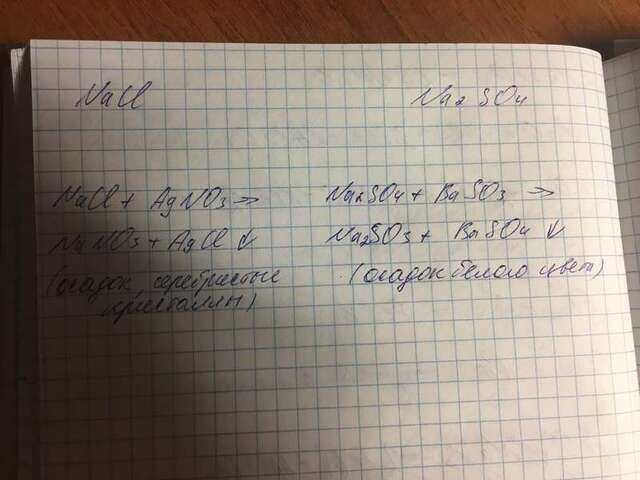 NaCl
Na2SO4
NaCl + AgNO3 →
NaNO3 + AgCl ↓
(осадок, серебристые
кристаллы)
Na2SO4 + BaSO3 →
Na2SO3 + BaSO4 ↓
(осадок белого цвета)